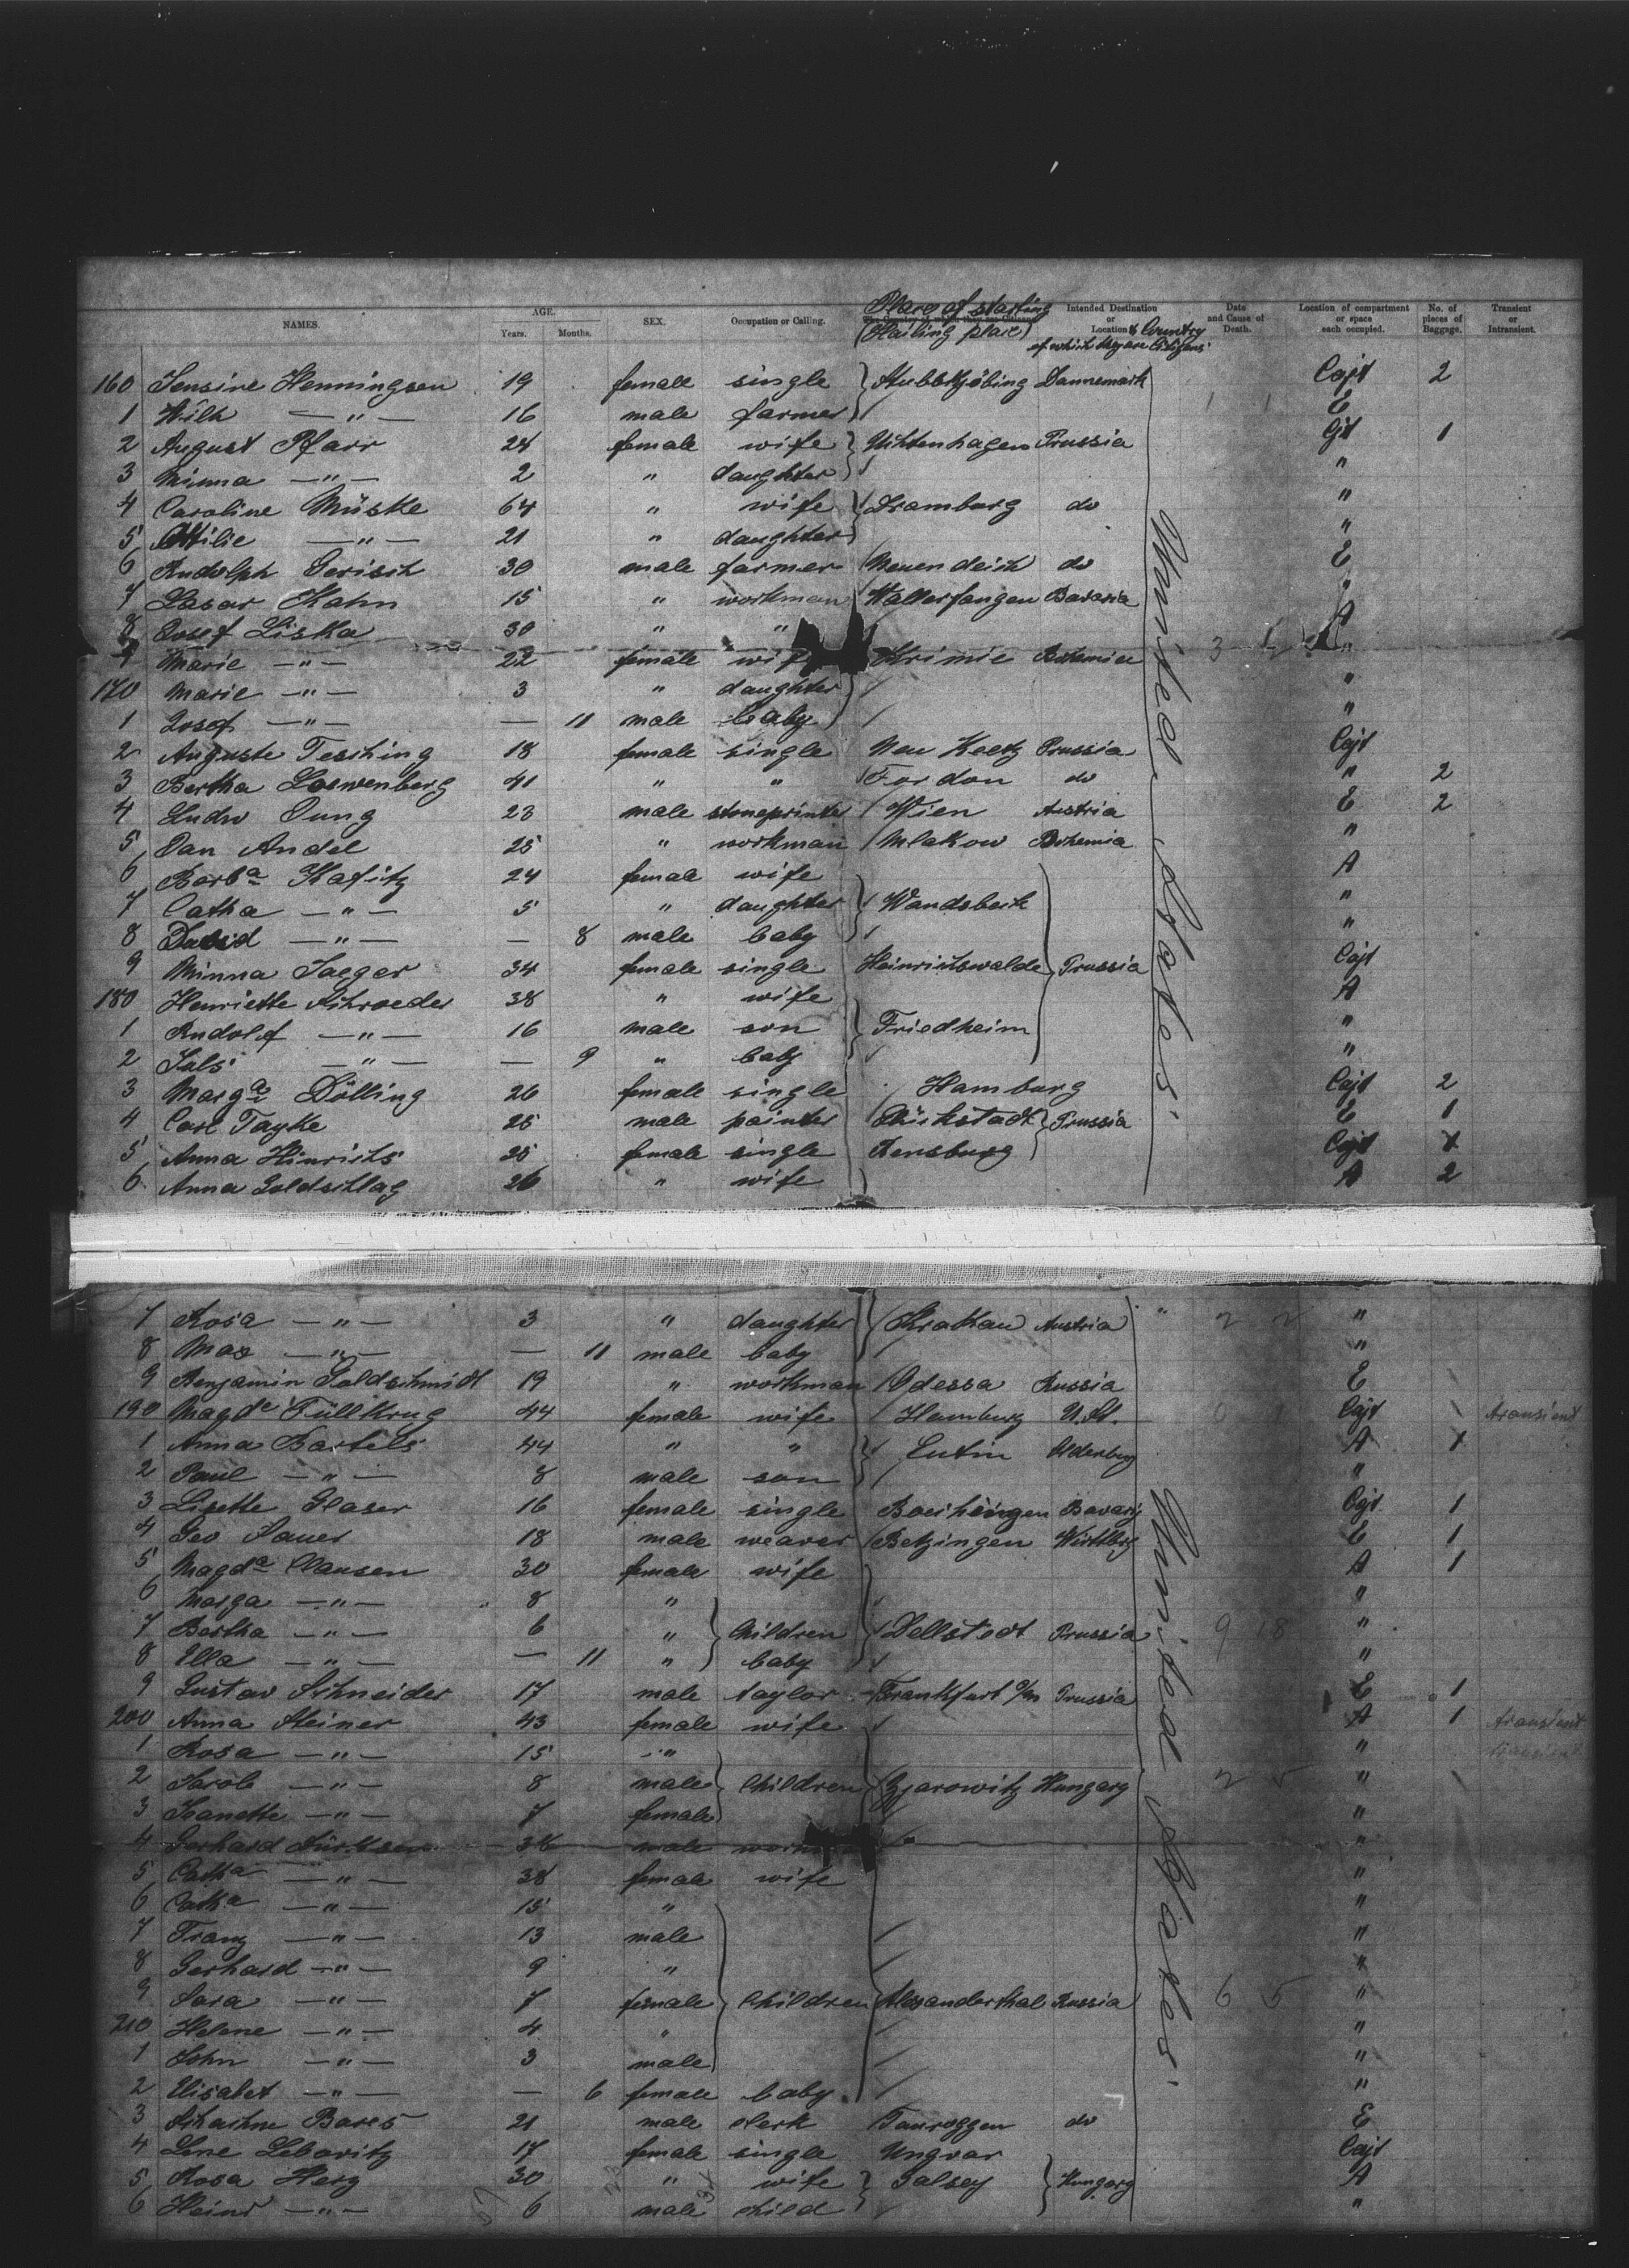 NAMES. AGE. Years. Months. SEX. Occupation or Calling. Place of starting (Hailing place) Intended Destination or Location & Country of which they are Citizens Date and Cause of Death. Location of compartment or space each occupied. No. of pieces of Baggage. Transient or Intransient.
160 Jensine Henningsen 19 female single Stubbekjöbing Dannemark Cajt 2
1 Wilh — " — 16 male farmer E
2 August Pfarr 24 female wife Prussia Cjt 1
3 Minna — " — 2 " daughter "
4 Caroline Müske 64 " wife Dramburg do "
5 Ottilie — " — 21 " daughter "
6 Rudolph Gerisch 30 male farmer Neuendeich do E
7 Lasar Kahn 15 " workman Wallerfangen Bavaria "
8 Josef Liska 30 " " A
9 Marie — " — 22 female wife Krimie Bohemia "
170 Marie — " — 3 " daughter "
1 Josef — " — — 11 male baby "
2 Auguste Tesching 18 female single Neu Prussia Cajt
3 Bertha Loewenberg 41 " " Fordon do " 2
4 Ludw Jung 23 male stoneprinter Wien Austria E 2
5 Jan Andel 25 " workman Mlakow Bohemia "
6 Barba Kafitz 24 female wife A
7 Catha — " — 5 " daughter Wandsbeck "
8 David — " — — 8 male baby "
9 Minna Jaeger 34 female single Heinrichswalde Prussia Cajt
180 Henriette Schroeder 38 " wife A
1 Rudolf — " — 16 male son Friedheim "
2 Juls — " — — 9 " baby "
3 Marga Dölling 26 female single Hamburg Cajt 2
4 Carl Tayke 25 male painter Glückstadt Prussia E 1
5 Anna Hinrichs 25 female single Rensburg Cajt 1
6 Anna Goldschlag 26 " wife A 2
United States
7 Rosa — " — 3 " daughter Krakau Austria " 2 2 "
8 Max — " — — 11 male baby "
9 Benjamin Goldschmidt 19 " workman Odessa Russia E
190 Magde Füllkrug 44 female wife Hamburg U.St. Cajt transient
1 Anna Bartels 44 " " Eutin Oldenburg A 1
2 Paul — " — 8 male son "
3 Lisette Glaser 16 female single Bavaria Cajt 1
4 Geo Sauer 18 male weaver Betzingen Württbrg E 1
5 Magda Clausen 30 female wife A 1
6 Marga — " — 8 " "
7 Bertha — " — 6 " Children Dellstedt Prussia 9 18 "
8 Ella — " — — 11 " baby "
9 Gustav Schneider 17 male taylor Frankfurt o/m Prussia E 1
200 Anna Steiner 43 female wife A 1 transient
1 Rosa — " — 15 " " transient
2 Jacob — " — 8 male Children Gjarowitz Hungary 2 5 "
3 Jeanette — " — 7 female "
4 Gerhard 38 male "
5 Catha — " — 38 female wife "
6 Catha — " — 15 " "
7 Franz — " — 13 male "
8 Gerhard — " — 9 " "
9 Sara — " — 7 female Children Alexanderthal Russia 6 5 "
210 Helene — " — 4 " "
1 John — " — 3 male "
2 Elisabet — " — — 6 female baby "
3 Bares 21 male clerk Tauroggen do E
4 Lene Lebovitz 17 female single Ungvar Cajt
5 Rosa Herz 30 " wife Galsey Hungary A
6 Heinr — " — 6 male child "
United States